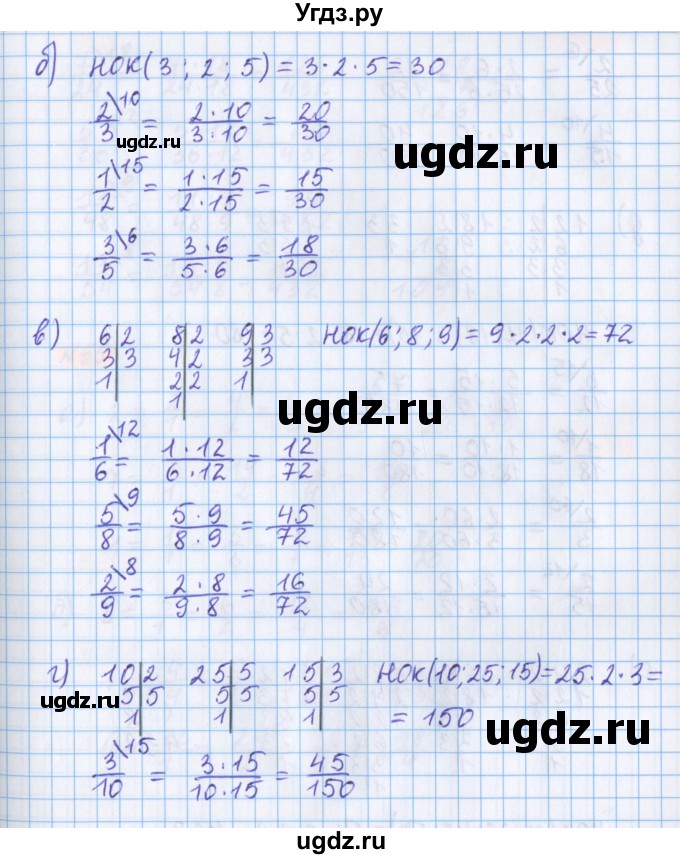 Угдз.ру
б) НОК(3 ; 2 ; 5) = 3·2·5 = 30
2/3 \10 = 2·10/3·10 = 20/30
ugdz.ru
ugdz.ru
1/2 \15 = 1·15/2·15 = 15/30
3/5 \6 = 3·6/5·6 = 18/30
в) 6|2 8|2 9|3 НОК(6; 8; 9) = 9·2·2·2 = 72
3|3 4|2 3|3
1| 2|2 1|
1|
ugdz.ru
1/6 \12 = 1·12/6·12 = 12/72
5/8 \9 = 5·9/8·9 = 45/72
2/9 \8 = 2·8/9·8 = 16/72
г) 10|2 25|5 15|3 НОК(10; 25; 15) = 25·2·3 =
5|5 5|5 5|5
ugdz.ru
1| 1| 1| = 150
ugdz.ru
3/10 \15 = 3·15/10·15 = 45/150
ugdz.ru